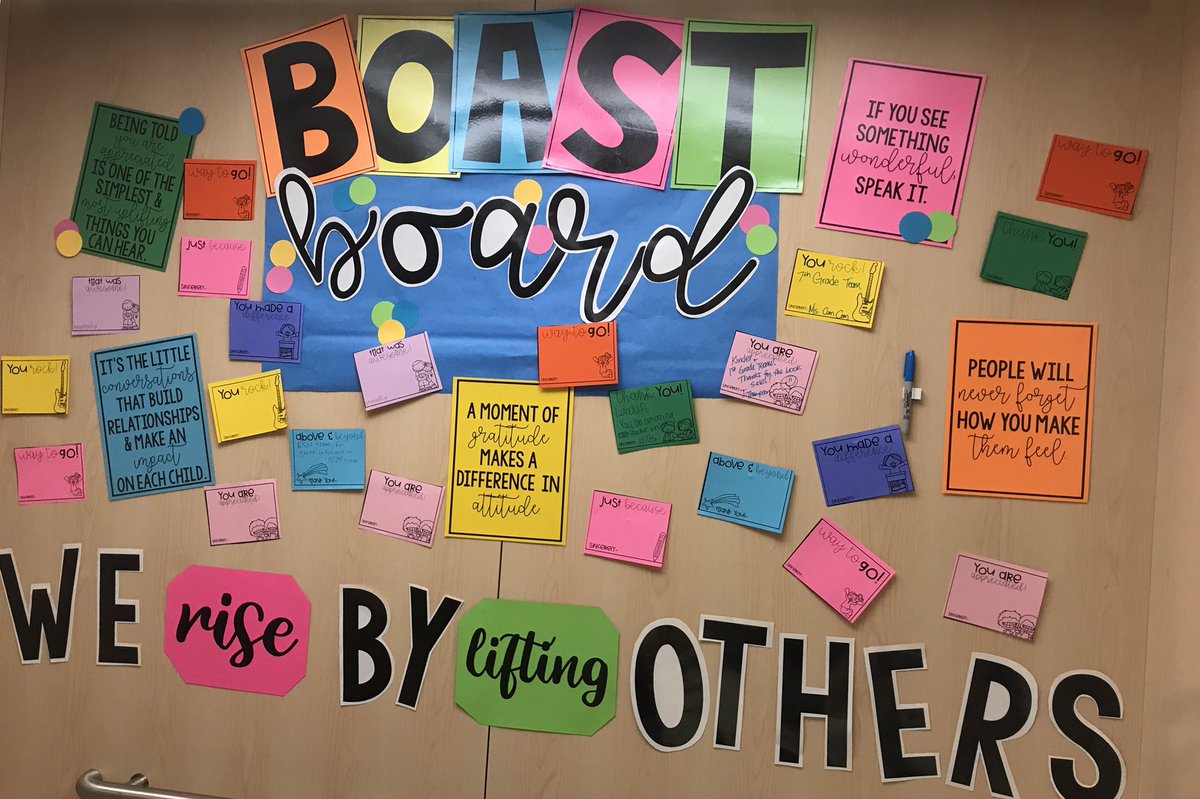 BOAST
board
BEING TOLD
you are
appreciated
IS ONE OF THE
SIMPLEST &
most uplifting
THINGS YOU
CAN HEAR.
way to GO!
just because
SINCERELY,
that was
awesome!
You made a
difference
IF YOU SEE
SOMETHING
wonderful,
SPEAK IT.
way to GO!
thank YOU!
YOU rock!
7th Grade Team
SINCERELY,
Ms. Cam Cam
YOU rock!
SINCERELY,
IT'S THE LITTLE
conversations
THAT BUILD
RELATIONSHIPS
& MAKE AN
impact
ON EACH CHILD.
YOU rock!
SINCERELY,
that was
awesome!
way to GO!
SINCERELY,
YOU ARE
appreciated!
Kinder +
1st Grade Teams!
Thanks for the book
Sales!
thank YOU!
PEOPLE WILL
never forget
HOW YOU MAKE
them feel.
way to GO!
SINCERELY,
above & beyond
THANK YOU!
A MOMENT OF
gratitude
MAKES A
DIFFERENCE IN
attitude.
You made a
difference
SINCERELY,
above & beyond
THANK YOU!
YOU ARE
appreciated!
SINCERELY,
YOU ARE
appreciated!
SINCERELY,
just because
SINCERELY,
way to GO!
SINCERELY,
YOU ARE
appreciated!
SINCERELY,
WE rise BY lifting OTHERS